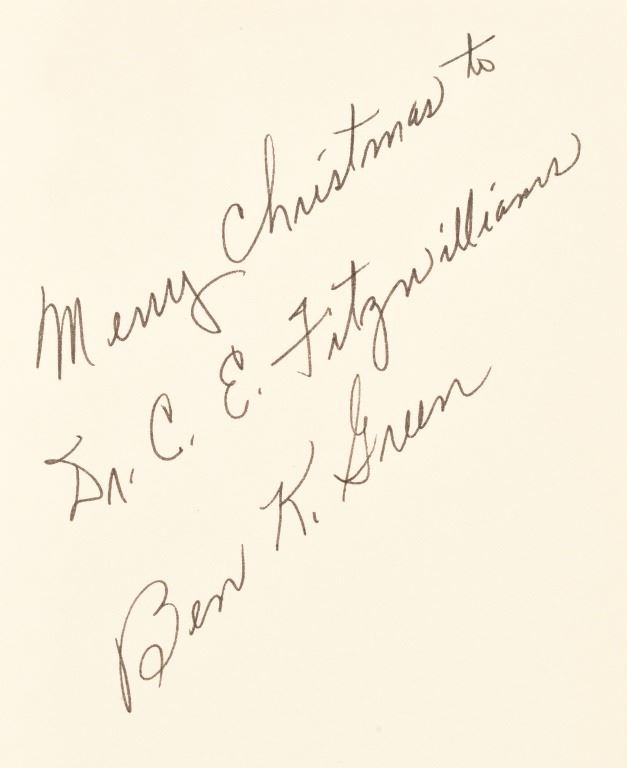 Merry Christmas to
Dr. C. E. Fitzwilliams
Ben K. Green